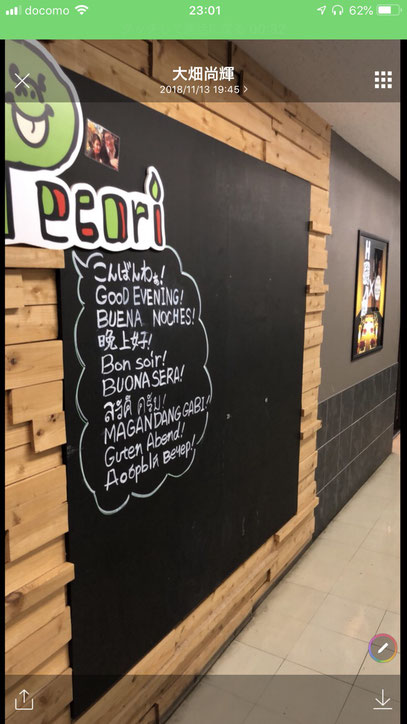 docomo 23:01 62%
大畑尚輝
2018/11/13 19:45
Pecori
こんばんわぁ!
GOOD EVENING!
BUENA NOCHES!
晩上好!
Bon soir!
BUONA SERA!
สวัสดี ครับ!
MAGANDANG GABI!
Guten Abend!
Добрый вечер!